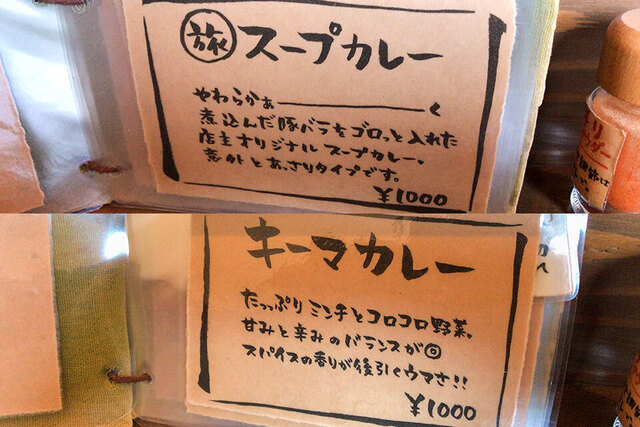 旅 スープカレー
やわらかぁーーーーーく
煮込んだ豚バラをゴロっと入れた
店主オリジナルスープカレー。
意外とあっさりタイプです。
¥1000
キーマカレー
たっぷりミンチとコロコロ野菜。
甘みと辛みのバランスが◎
スパイスの香りが後引くウマさ!!
¥1000